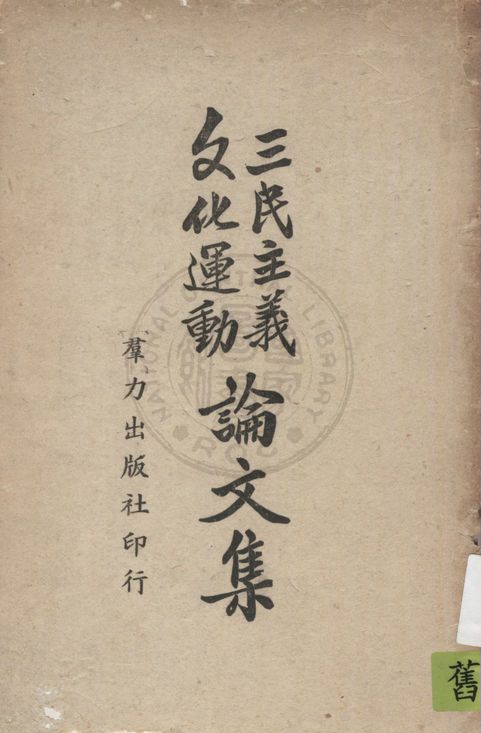 三民主義
文化運動
論文集
羣力出版社印行
NATIONAL CENTRAL LIBRARY
R.O.C.
舊